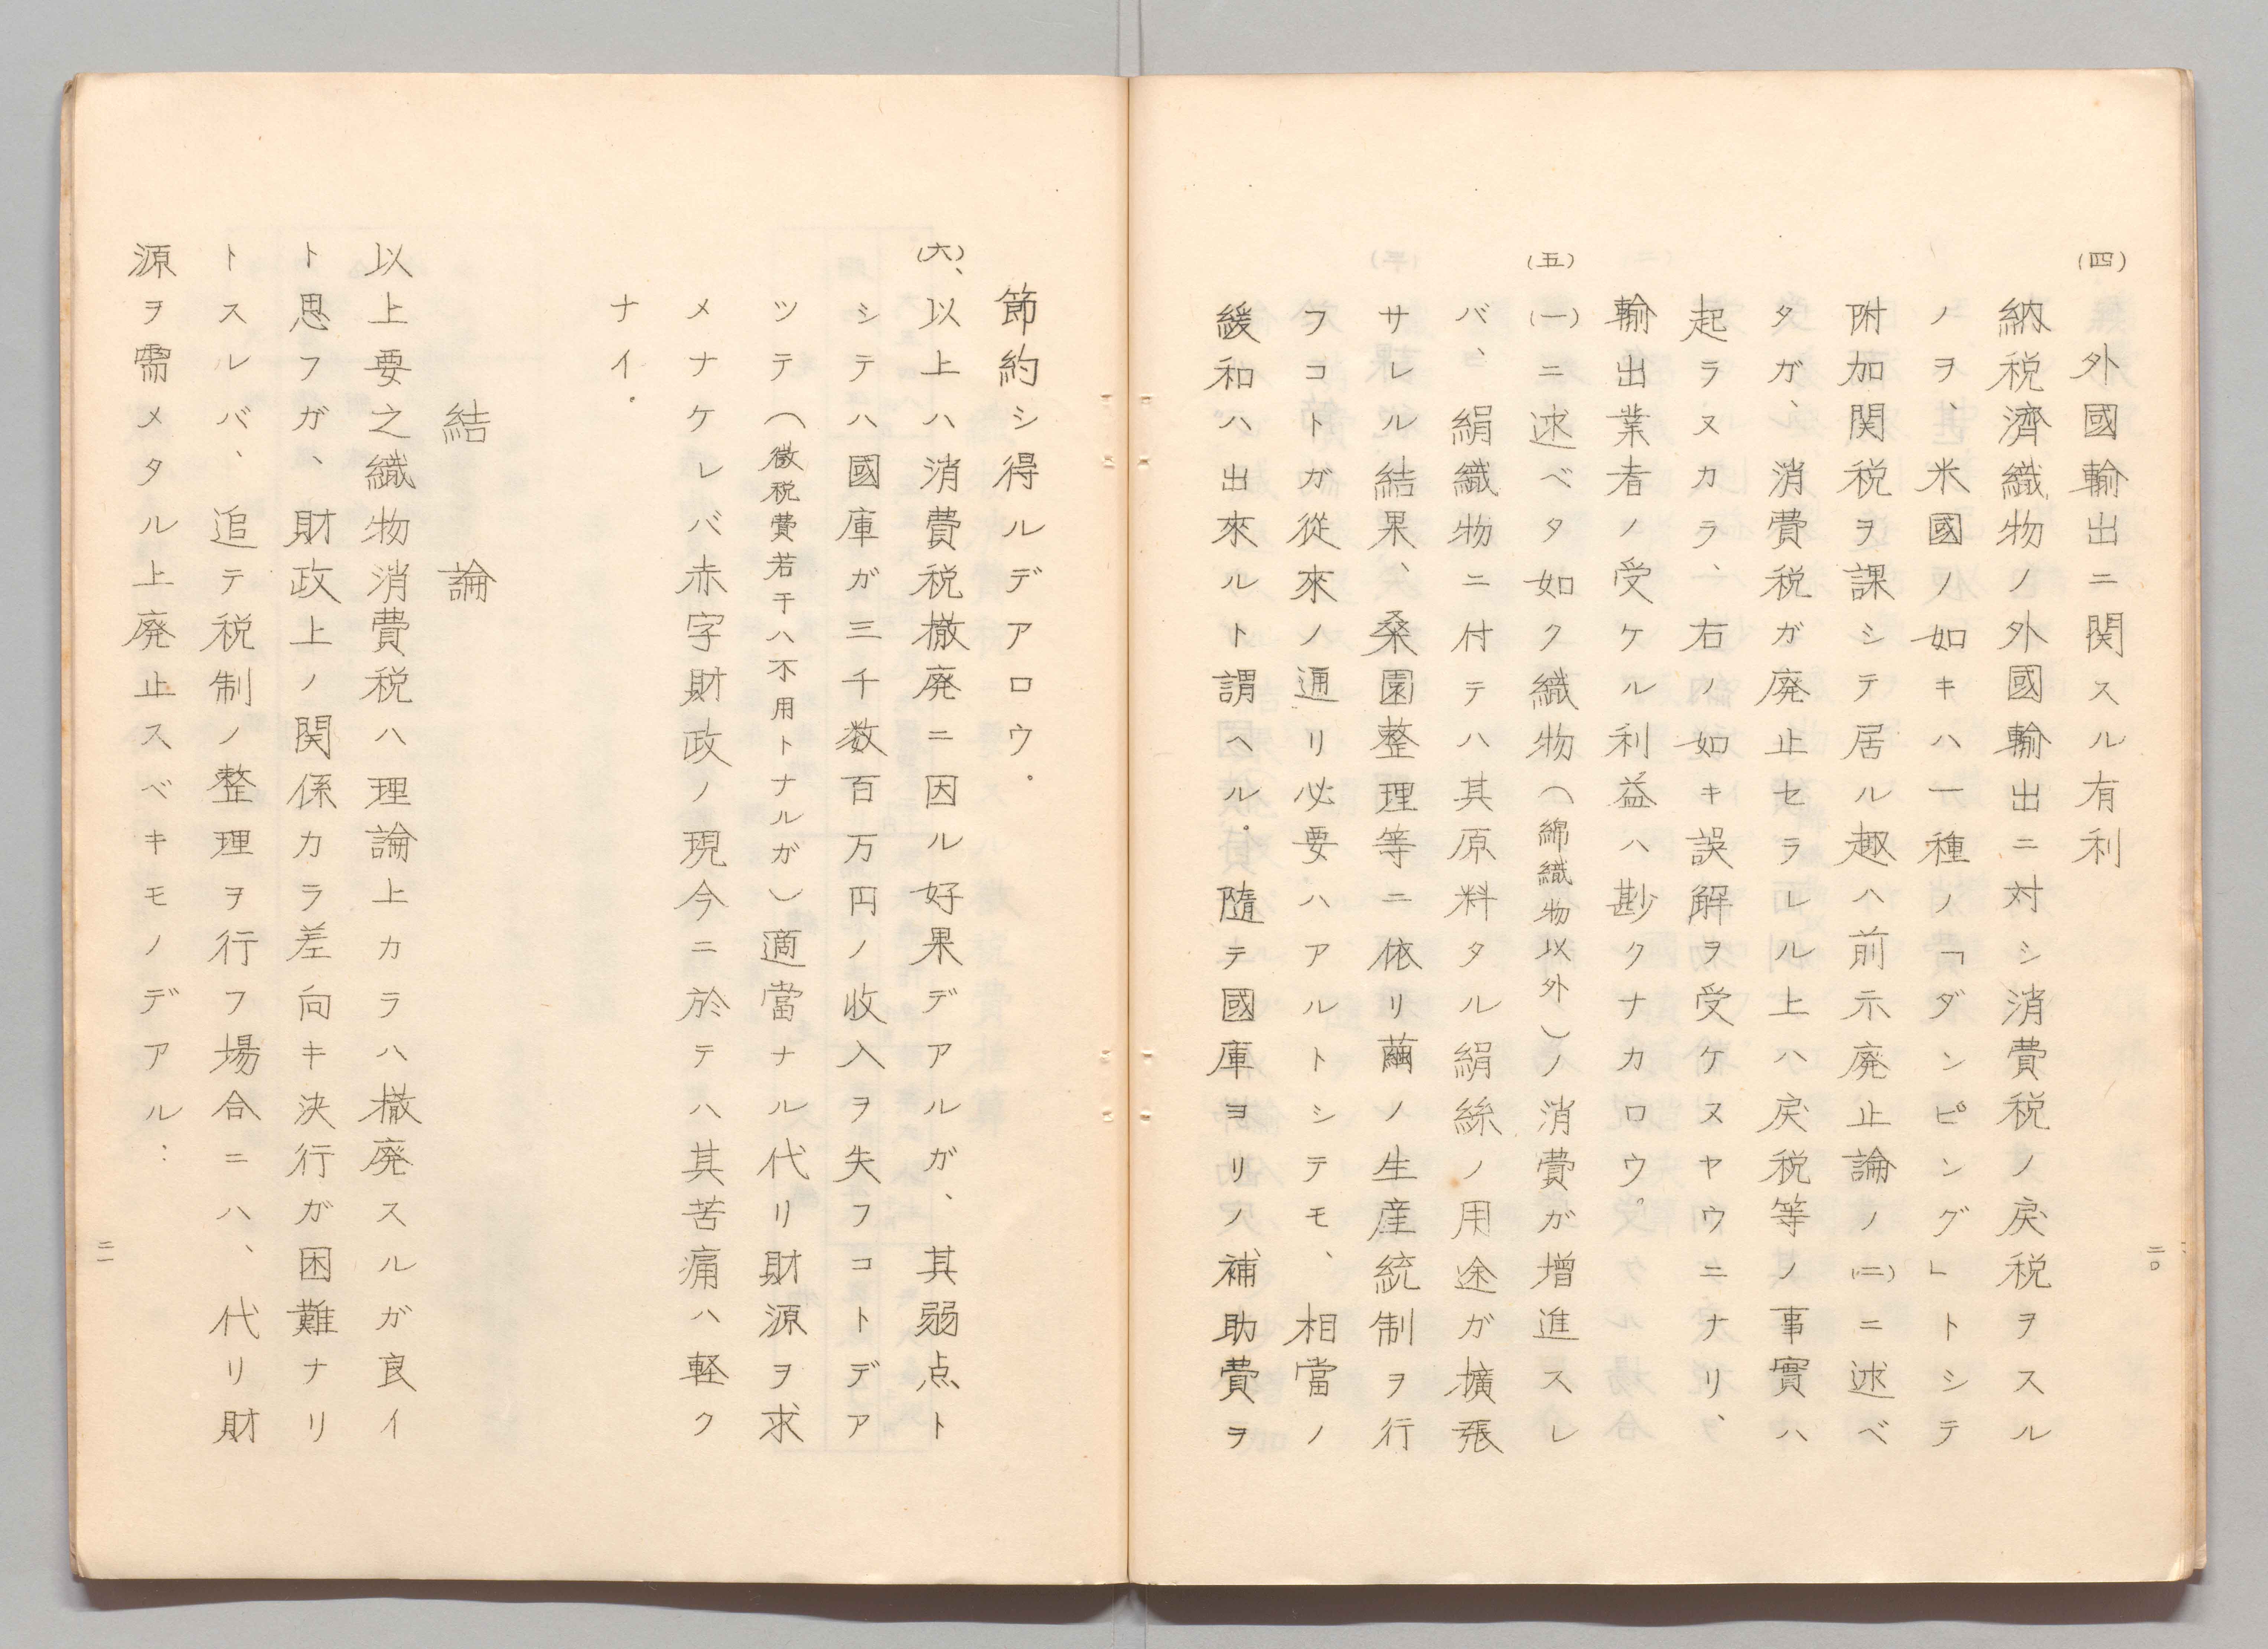 (四) 外國輸出ニ関スル有利
納税濟織物ノ外國輸出ニ対シ消費税ノ戻税ヲスル
ノヲ、米國ノ如キハ一種ノ「ダンピング」トシテ
附加関税ヲ課シテ居ル趣ハ前示廃止論ノ(二)ニ述ベ
タガ、消費税ガ廃止セラレル上ハ戻税等ノ事實ハ
起ラヌカラ、右ノ如キ誤解ヲ受ケヌヤウニナリ、
輸出業者ノ受ケル利益ハ尠クナカロウ。
(五) (一)ニ述ベタ如ク織物(綿織物以外)ノ消費ガ增進スレ
バ、絹織物ニ付テハ其原料タル絹絲ノ用途ガ擴張
サレル結果、桑園整理等ニ依リ繭ノ生産統制ヲ行
フコトガ從來ノ通リ必要ハアルトシテモ、相當ノ
緩和ハ出來ルト謂ヘル。隨テ國庫ヨリノ補助費ヲ
二〇
節約シ得ルデアロウ.
(六)、以上ハ消費税撤廃ニ因ル好果デアルガ、其弱点ト
シテハ國庫ガ三千数百万円ノ收入ヲ失フコトデア
ツテ(徴税費若干ハ不用トナルガ)適當ナル代リ財源ヲ求
メナケレバ赤字財政ノ現今ニ於テハ其苦痛ハ軽ク
ナイ.
結論
以上要之織物消費税ハ理論上カラハ撤廃スルガ良イ
ト思フガ、財政上ノ関係カラ差向キ決行ガ困難ナリ
トスレバ、追テ税制ノ整理ヲ行フ場合ニハ、代リ財
源ヲ需メタル上廃止スベキモノデアル:
二一